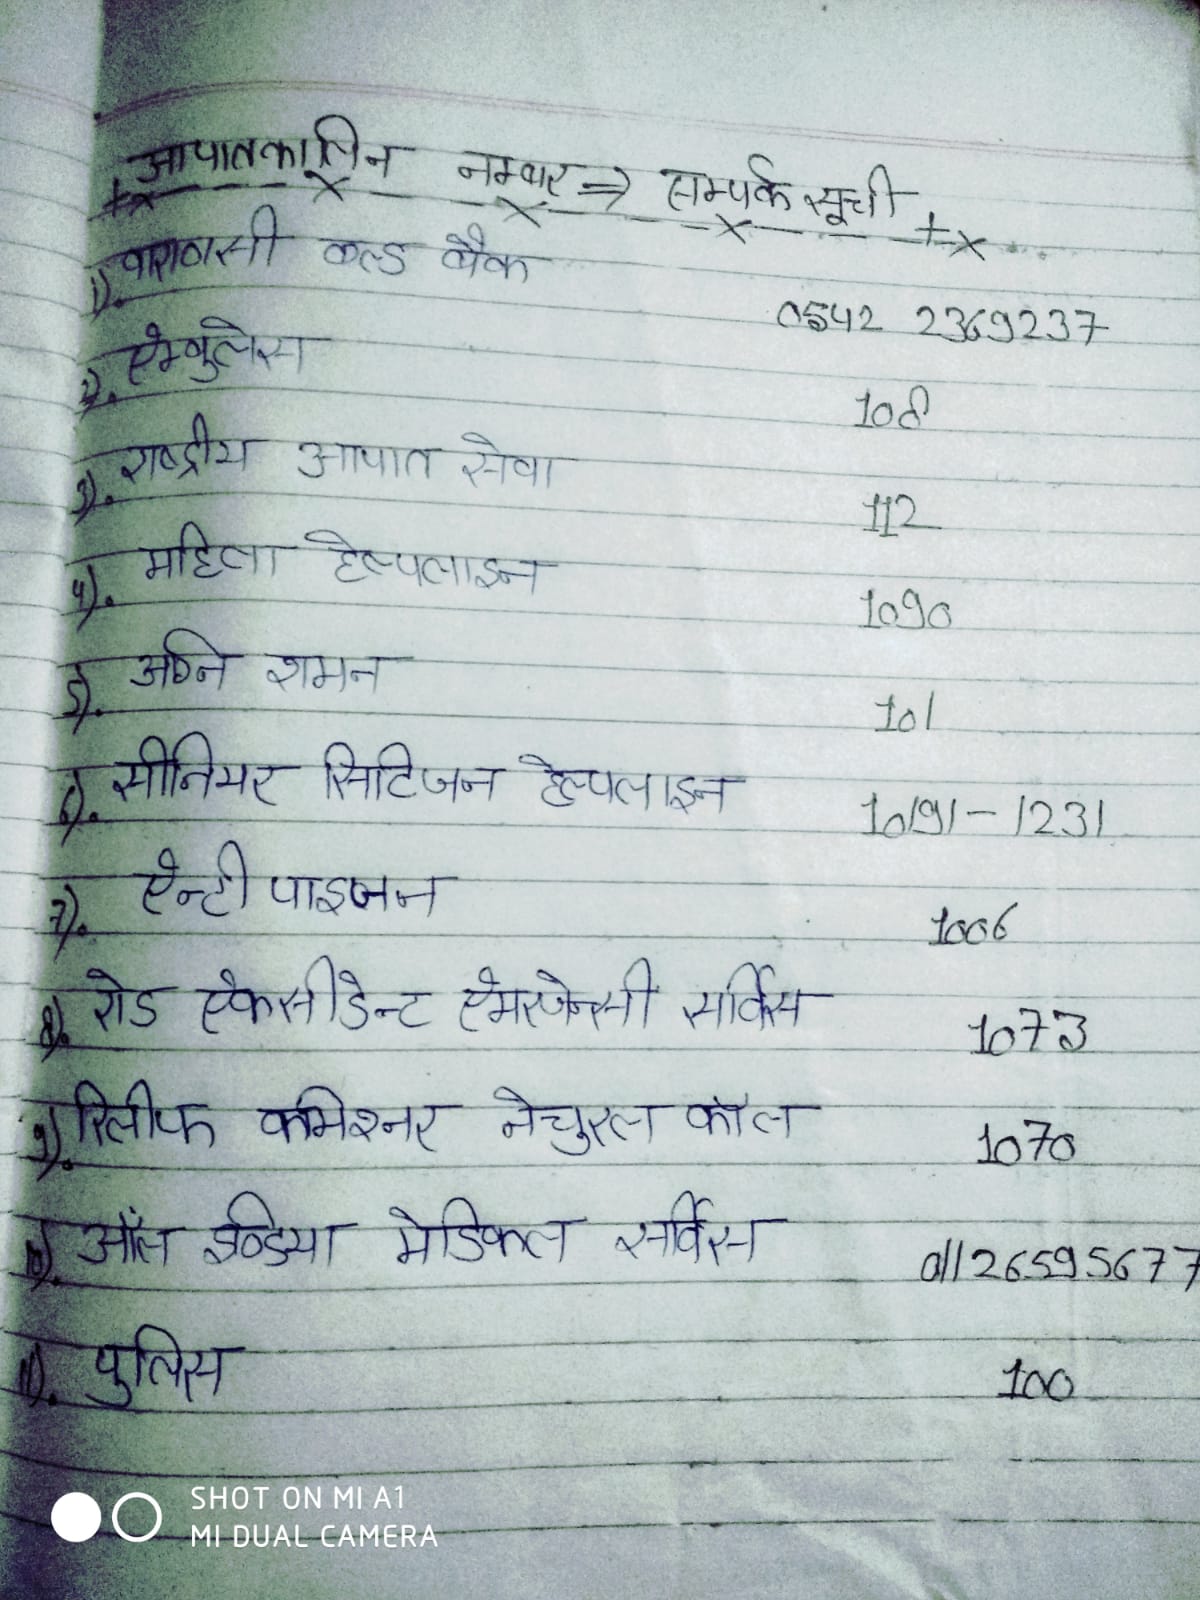 आपातकालिन नम्बर ⇒ सम्पर्क सूची
1). वाराणसी ब्लड बैंक 0542 2369237
2). ऐम्बुलेंस 108
3). राष्ट्रीय आपात सेवा 112
4). महिला हेल्पलाइन 1090
5). अग्नि शमन 101
6). सीनियर सिटिजन हेल्पलाइन 10191-1231
7). ऐन्टी पाइजन 1006
8). रोड ऐकसीडेन्ट ऐमरजेन्सी सर्विस 1073
9). रिलीफ कमिश्नर नेचुरल कॉल 1070
10). ऑल इण्डिया मेडिकल सर्विस 01126595677
11). पुलिस 100
SHOT ON MI A1
MI DUAL CAMERA